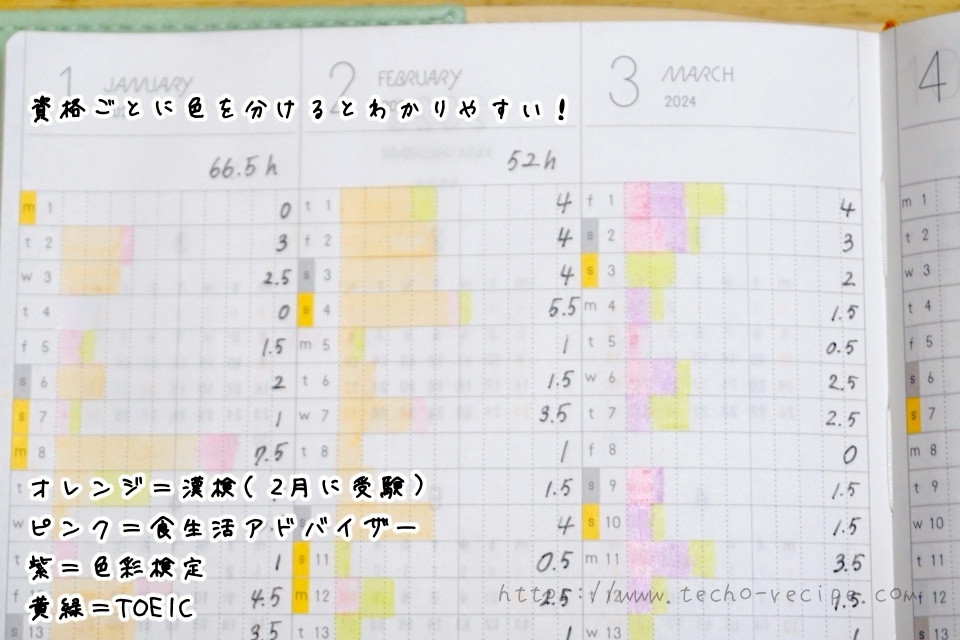 1 JANUARY
2 FEBRUARY
3 MARCH
2024
4
資格ごとに色を分けるとわかりやすい！
66.5h
52h
m 1 0 t 1 4 f 1 4 m 1
t 2 3 f 2 4 s 2 3 t 2
w 3 2.5 s 3 4 s 3 2 w 3
t 4 0 s 4 5.5 m 4 1.5 t 4
f 5 1.5 m 5 1 t 5 0.5 f 5
s 6 2 t 6 1.5 w 6 2.5 s 6
s 7 1 w 7 3.5 t 7 2.5 s 7
m 8 7.5 t 8 1 f 8 0 m 8
t 1.5 s 9 1.5 t 9
オレンジ＝漢検(2月に受験)
w 4 s 10 1.5 w 10
ピンク＝食生活アドバイザー
t 1 s 11 0.5 m 11 3.5 t 11
紫＝色彩検定
f 12 4.5 m 12 2.5 1.5 f 12
黄緑＝TOEIC
https://www.techo-recipe.com
s 13 3.5 t 13 1 w 13 1 s 13